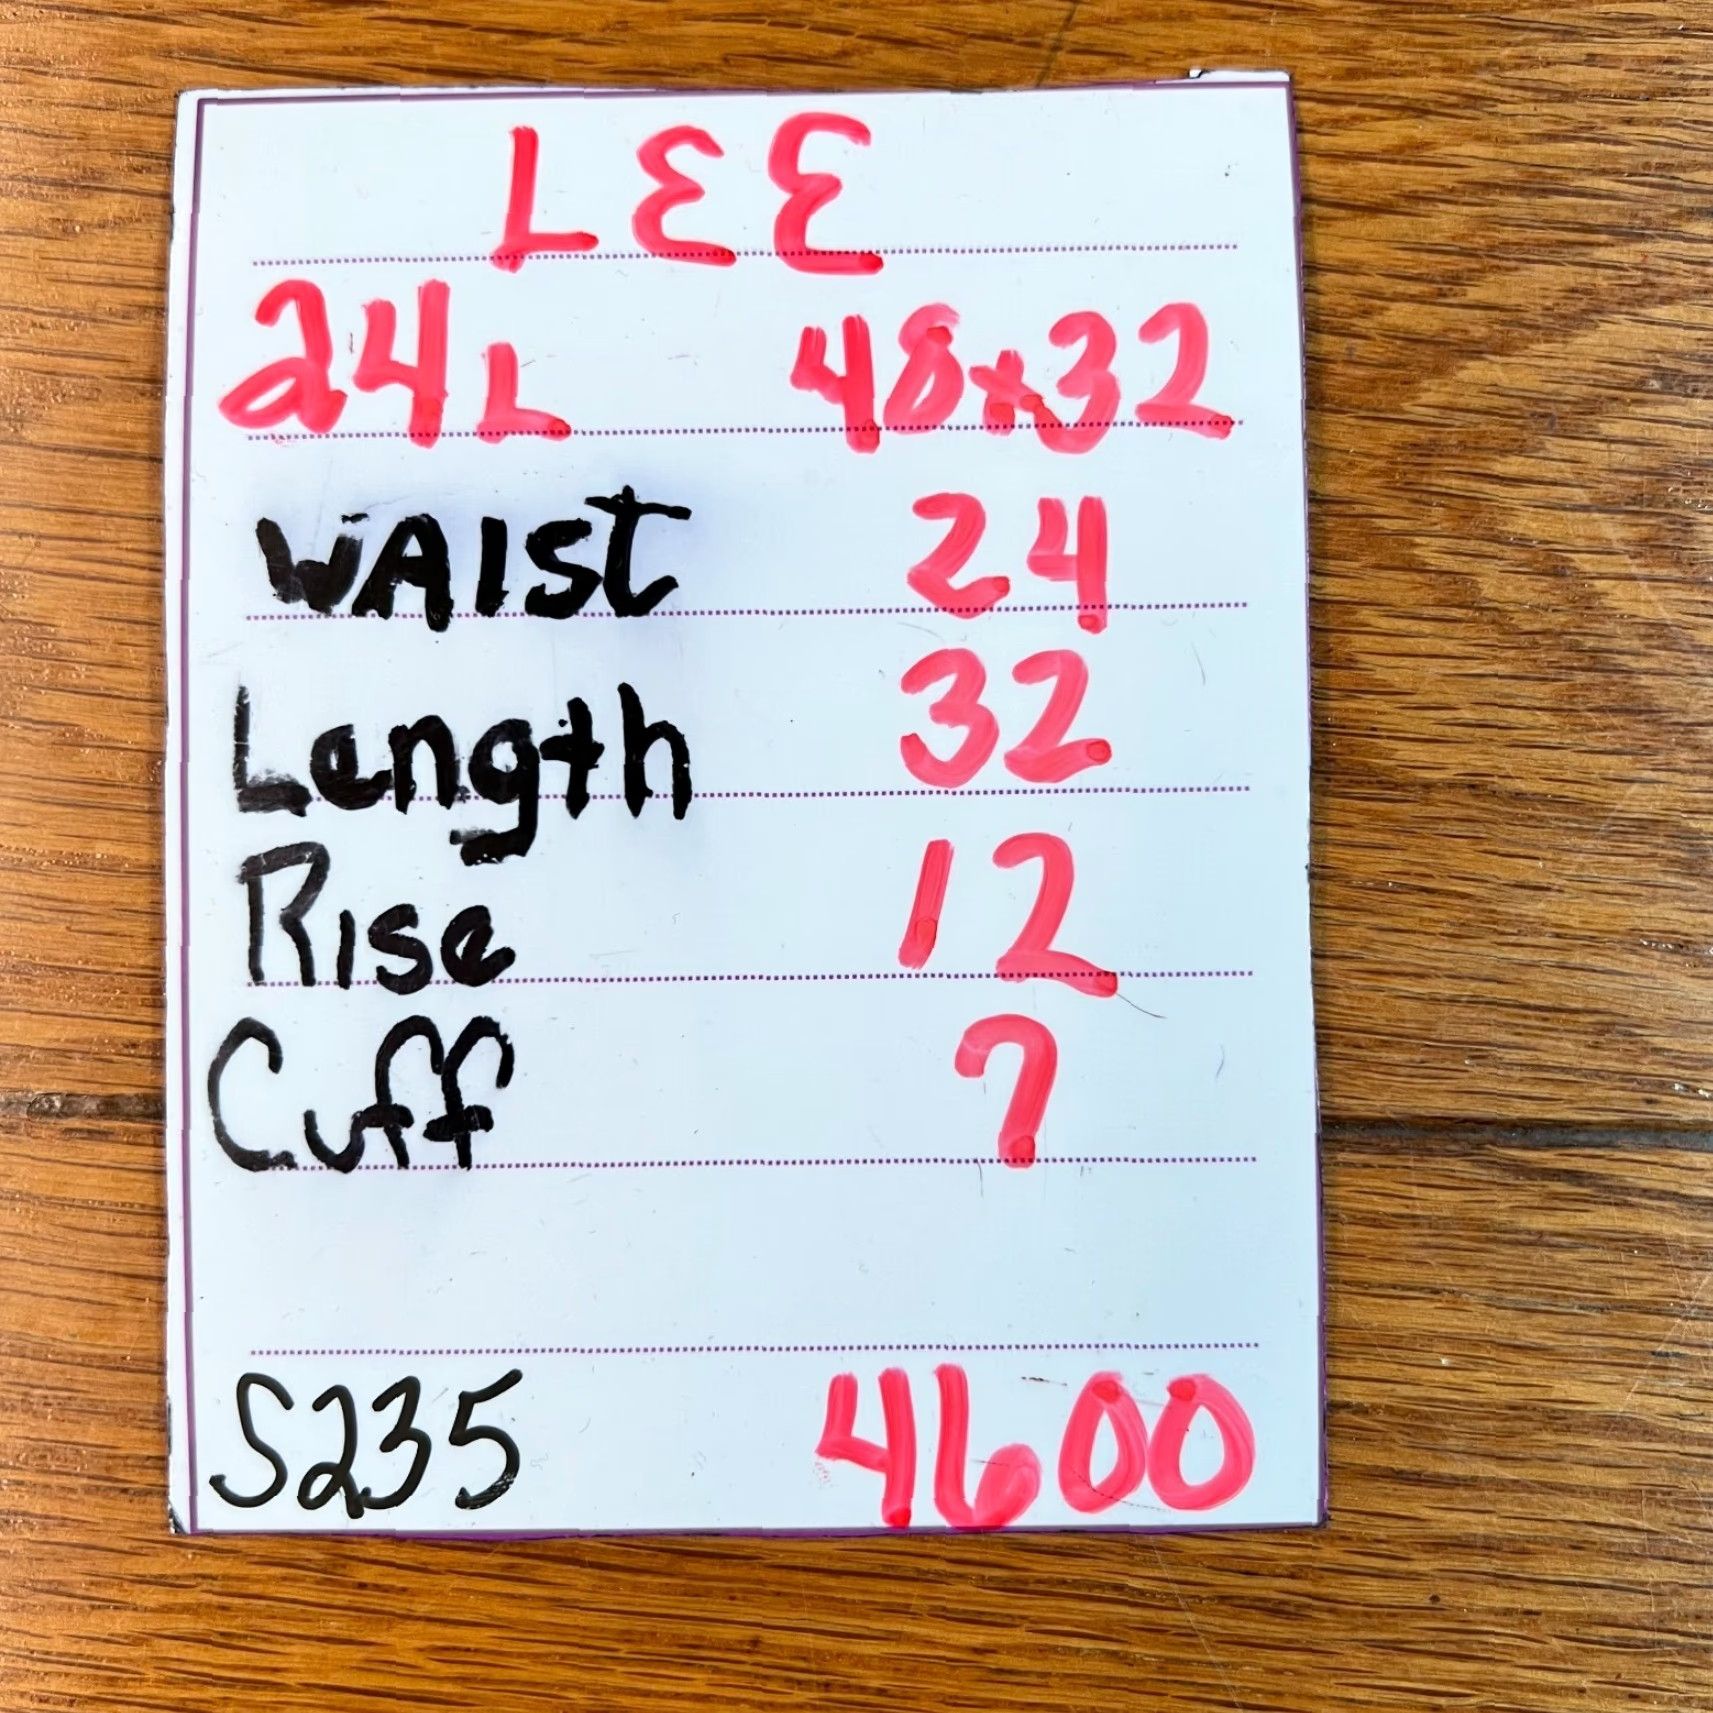 LEE
24L 48x32
WAIST 24
Length 32
Rise 12
Cuff 7
S235 4600